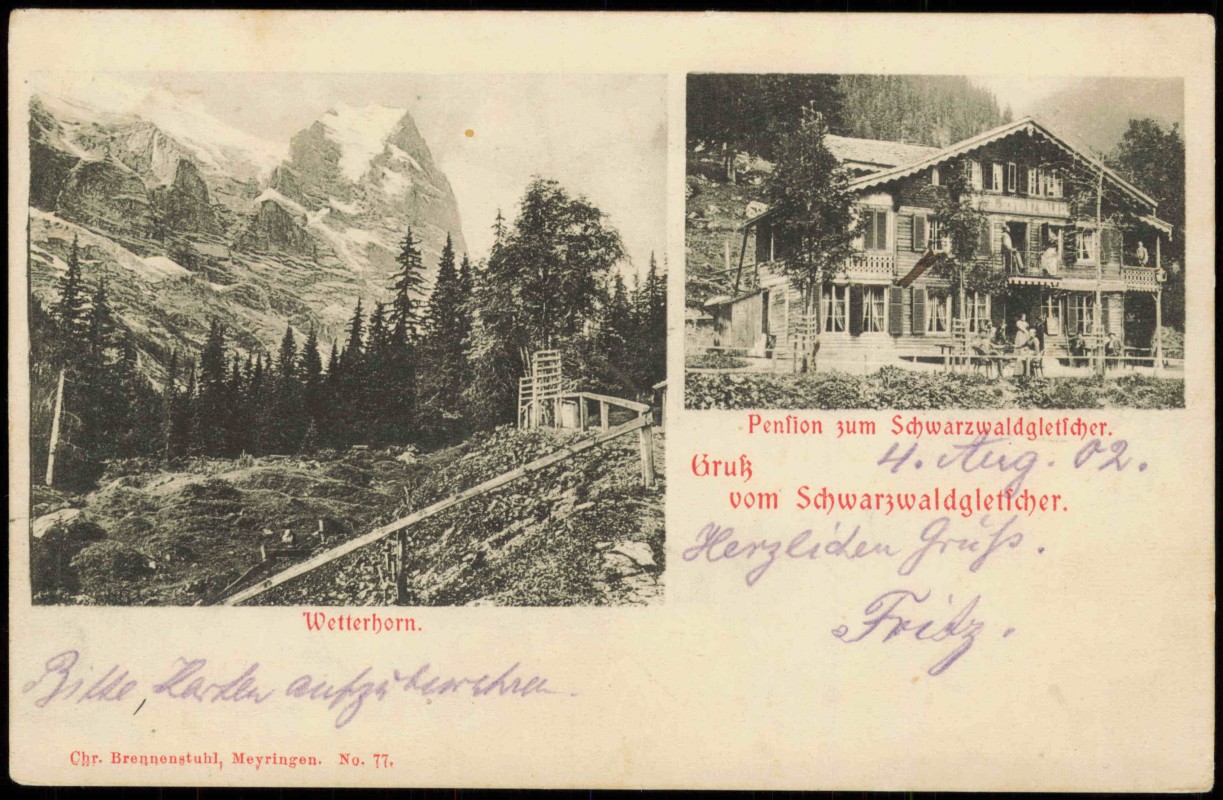 Wetterhorn.
Pension zum Schwarzwaldgletscher.
4. Aug. 02.
Gruß
vom Schwarzwaldgletscher.
Herzlichen Gruß.
Fritz.
Bitte, Karten aufzubewahren.
Chr. Brennenstuhl, Meyringen. No. 77.